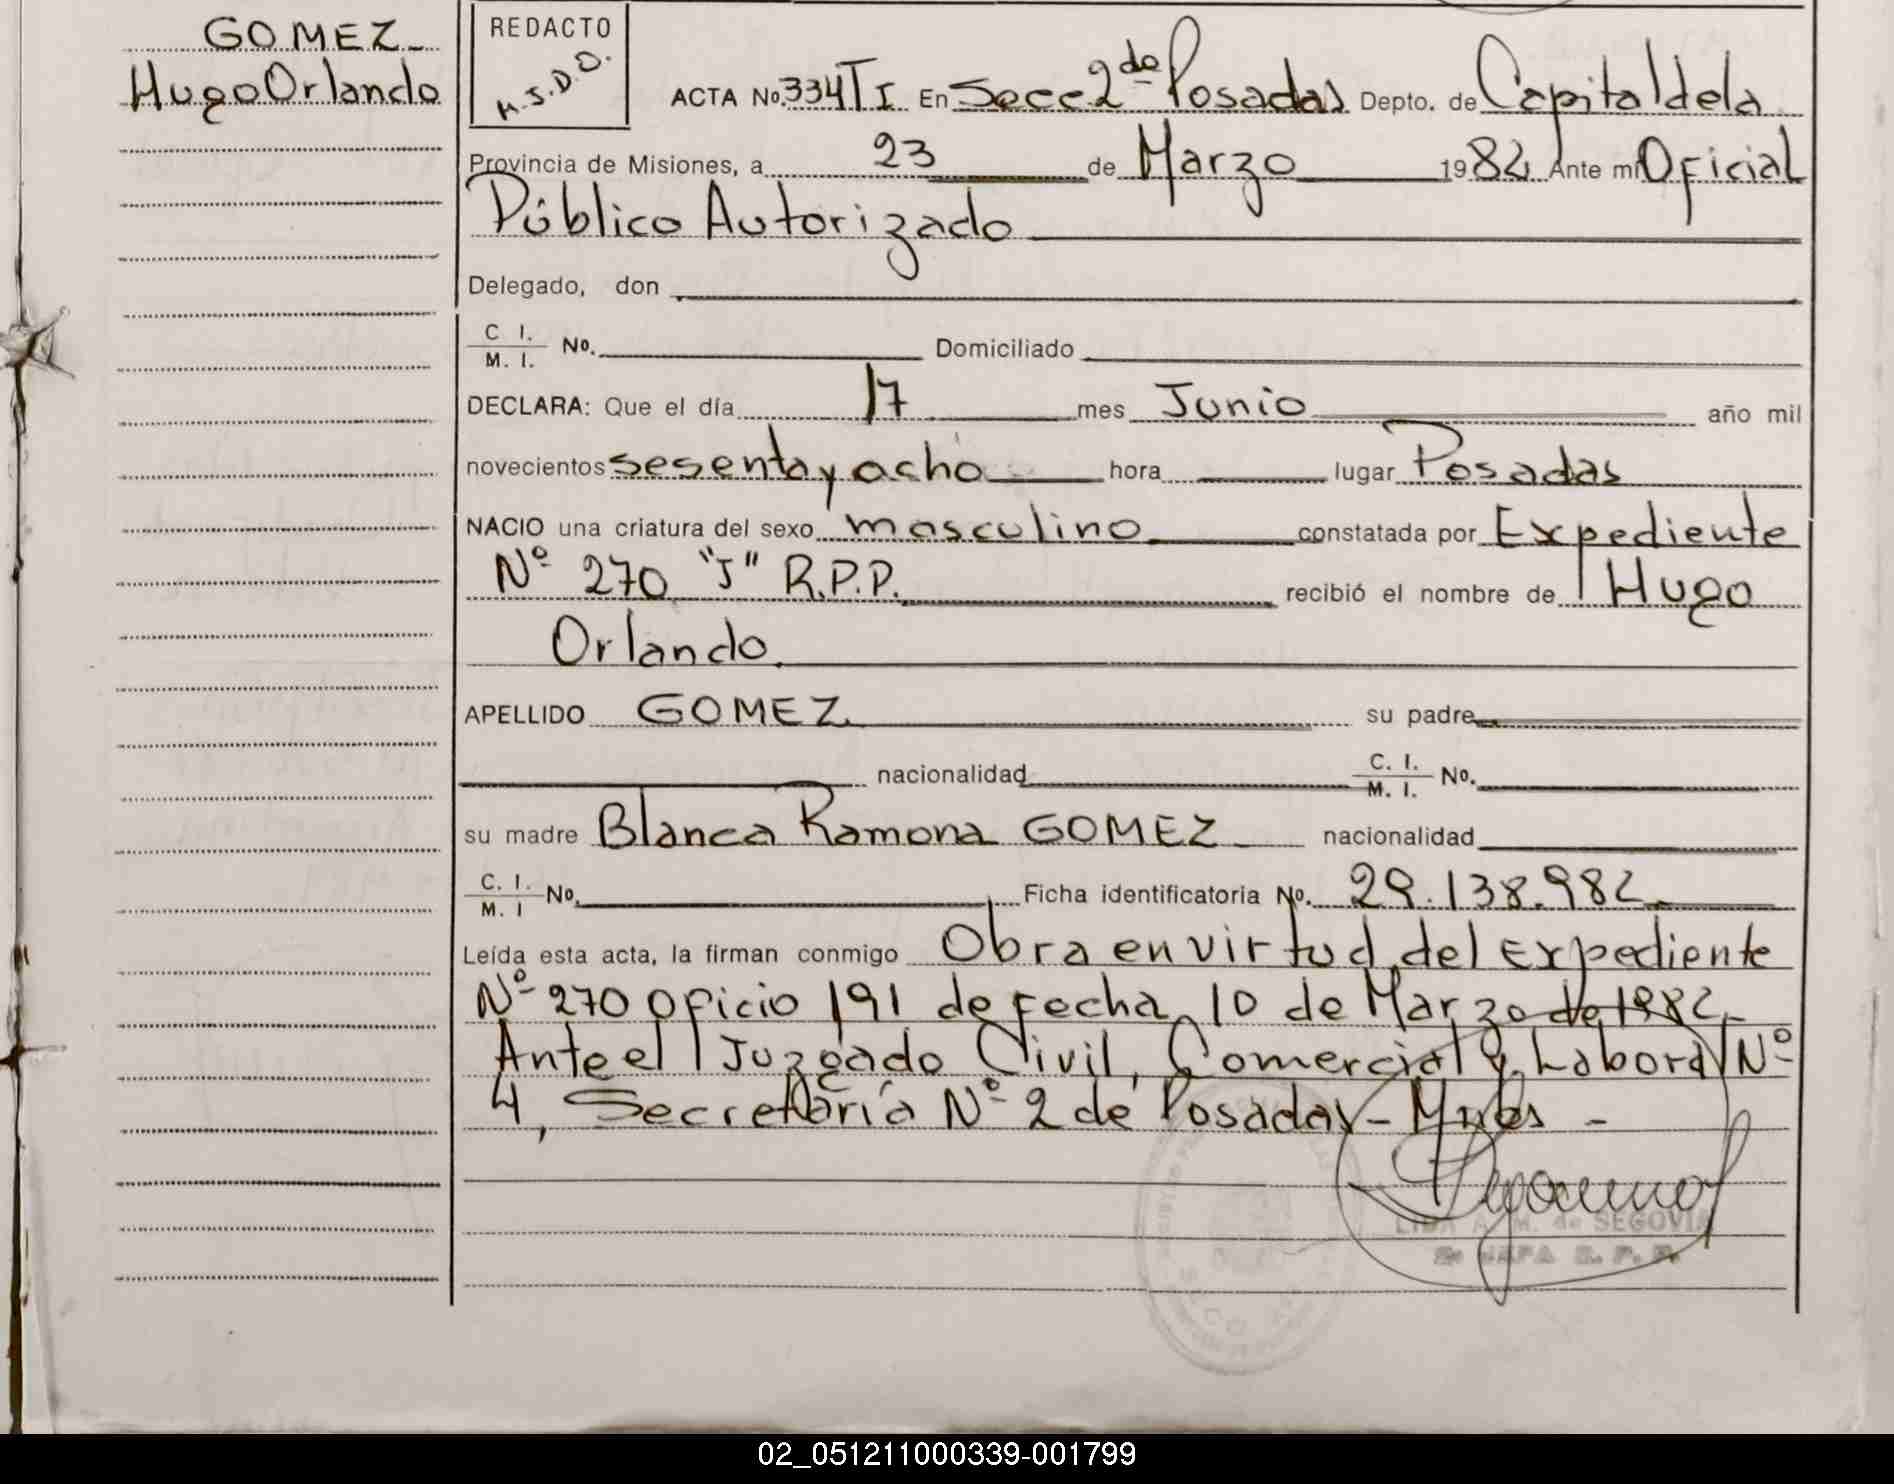 GOMEZ
Hugo Orlando
REDACTO
H.S.D.O.
ACTA No. 334 TI En Secc 2da Posadas Depto. de Capital de la
Provincia de Misiones, a 23 de Marzo 1982 Ante mi Oficial
Público Autorizado
Delegado, don
C. I. / M. I. No. Domiciliado
DECLARA: Que el día 17 mes Junio año mil
novecientos sesenta y ocho hora lugar Posadas
NACIO una criatura del sexo masculino constatada por Expediente
Nº 270 "J" R.P.P. recibió el nombre de Hugo
Orlando.
APELLIDO GOMEZ su padre
nacionalidad C. I. / M. I. No.
su madre Blanca Ramona GOMEZ nacionalidad
C. I. / M. I No. Ficha identificatoria No. 29.138.982
Leída esta acta, la firman conmigo Obra en virtud del Expediente
Nº 270 oficio 191 de fecha 10 de Marzo de 1982
Ante el Juzgado Civil, Comercial y Laboral Nº
4, Secretaría Nº 2 de Posadas - Mnes -
LIDA A. M. de SEGOVIA
JEFA R. P. P.
02_051211000339-001799